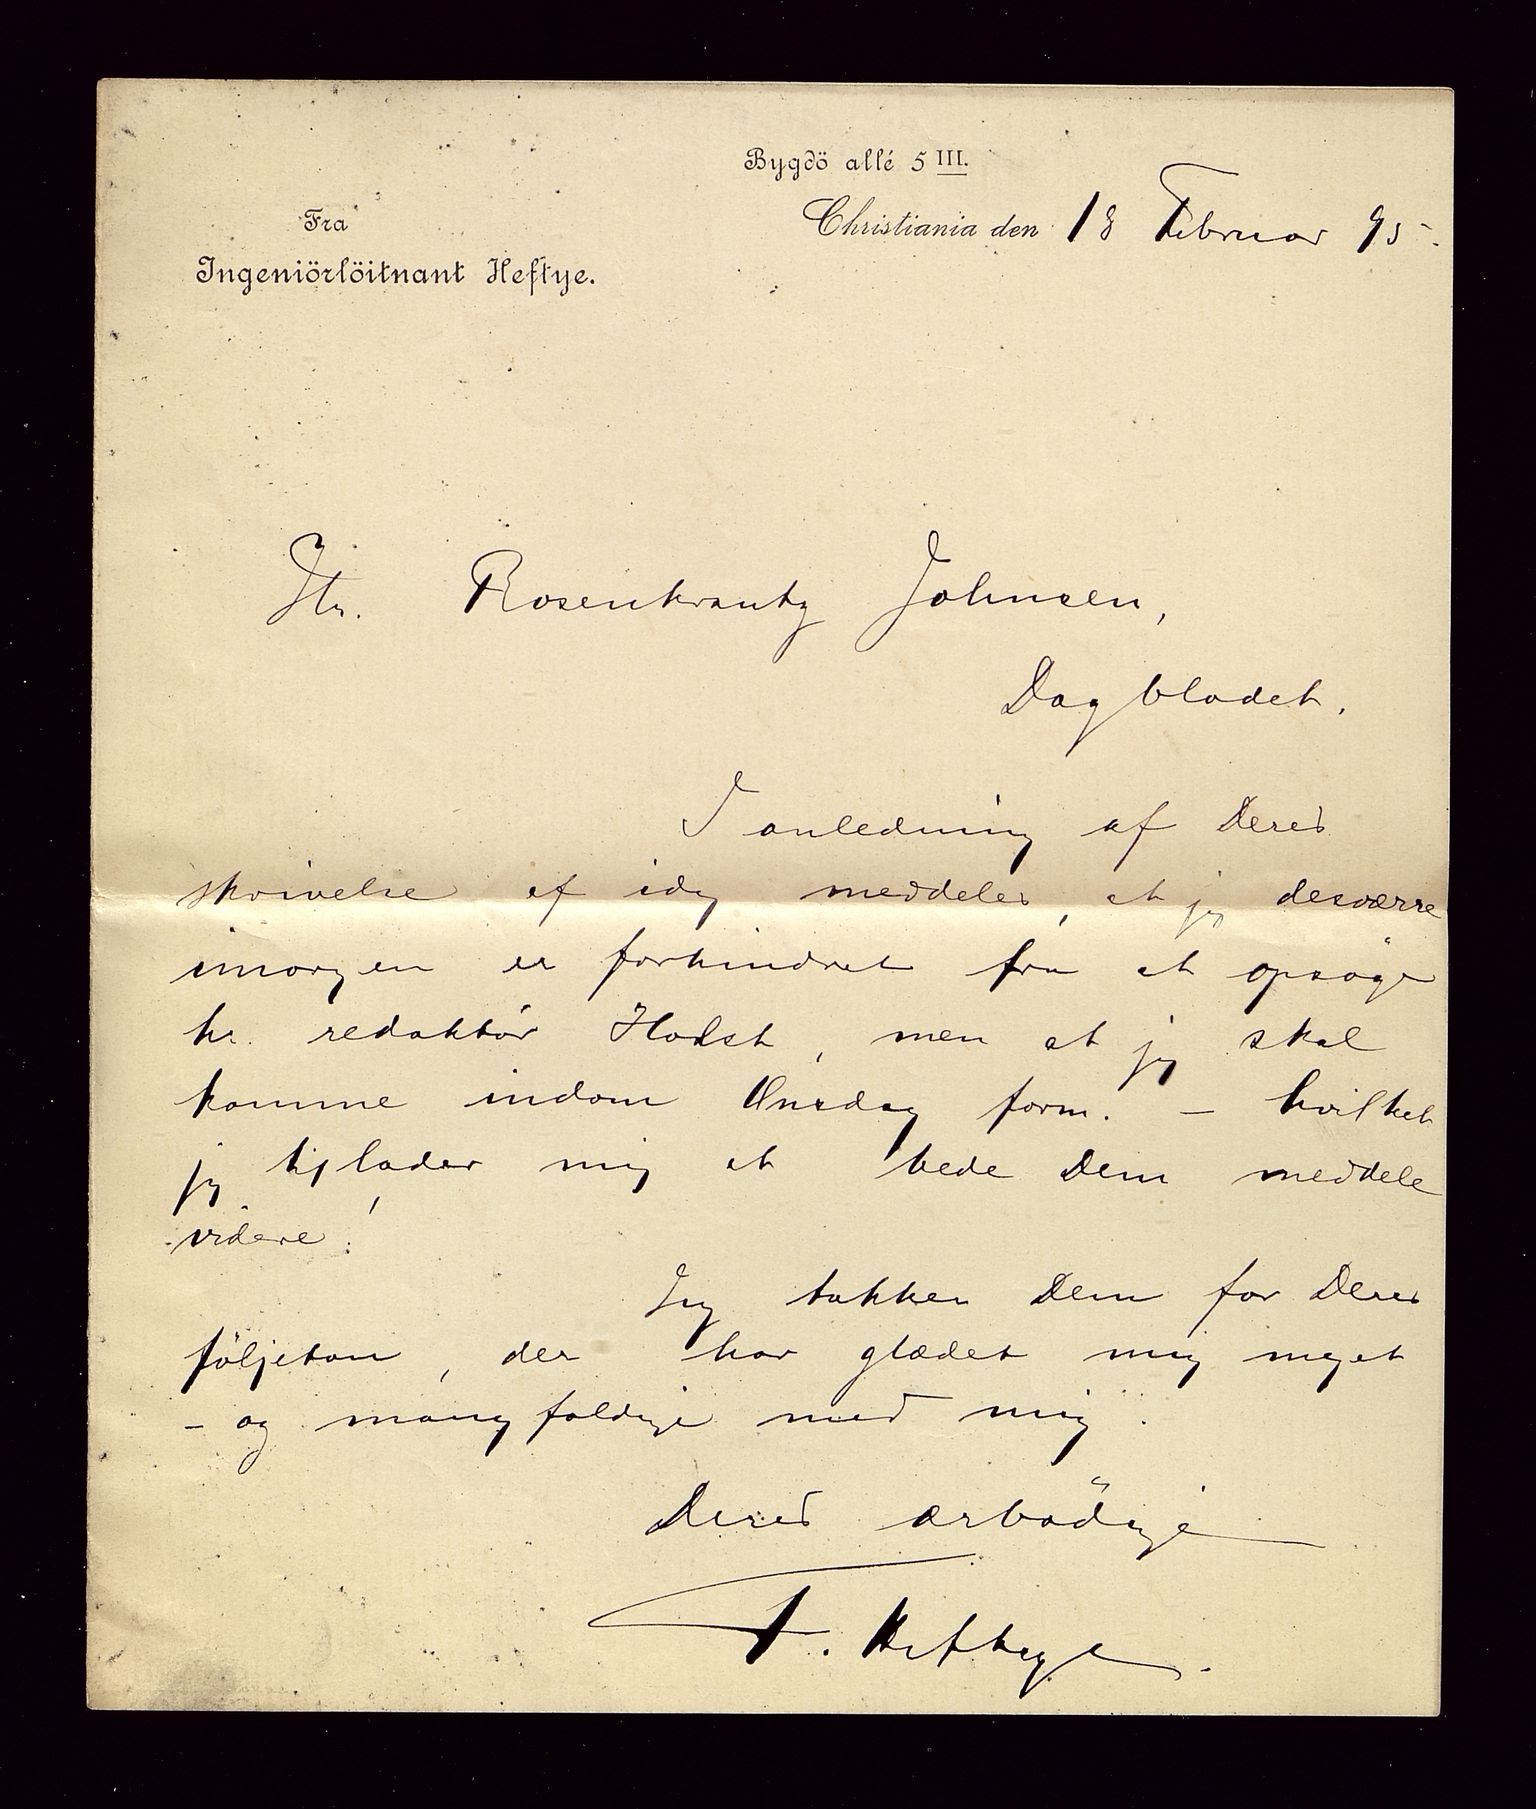 Bygdö allé 5 III.
Fra
Christiania den 18 Februar 95.
Ingeniörlöitnant Heftye.
Hr. Rosenkrantz Johnsen,
Dagbladet.
I anledning af Deres
skrivelse af idag meddeles, at jeg desværre
imorgen er forhindret fra at opsöge
hr. redaktör Holst, men at jeg skal
komme indom Onsdag form. – hvilket
jeg tillader mig at bede Dem meddele
videre!
Jeg takker Dem for Deres
följeton, der har glædet mig meget
– og mangfoldige med mig.
Deres ærbödige
T. Heftye.